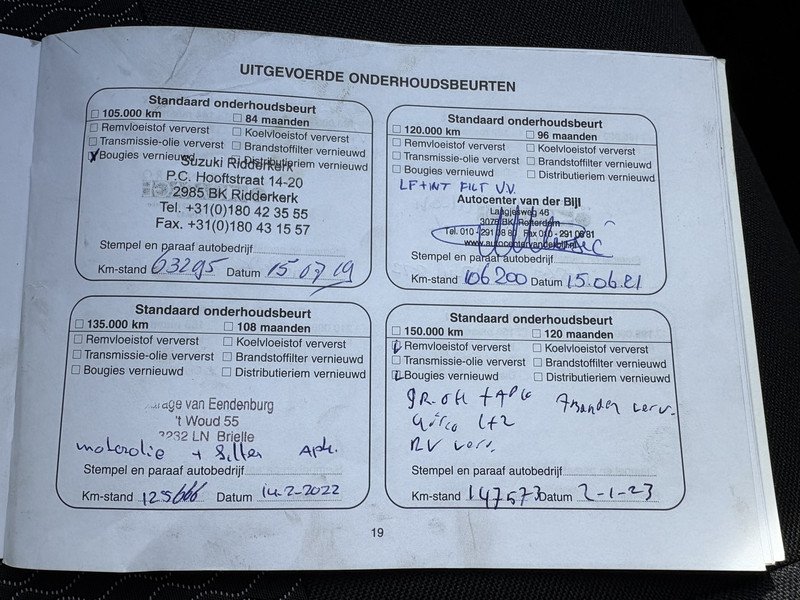 UITGEVOERDE ONDERHOUDSBEURTEN
Standaard onderhoudsbeurt
105.000 km 84 maanden
Remvloeistof ververst Koelvloeistof ververst
Transmissie-olie ververst Brandstoffilter vernieuwd
Bougies vernieuwd Distributieriem vernieuwd
Suzuki Ridderkerk
P.C. Hooftstraat 14-20
2985 BK Ridderkerk
Tel. +31(0)180 42 35 55
Fax. +31(0)180 43 15 57
Stempel en paraaf autobedrijf
Km-stand 63295 Datum 15.07.19
Standaard onderhoudsbeurt
120.000 km 96 maanden
Remvloeistof ververst Koelvloeistof ververst
Transmissie-olie ververst Brandstoffilter vernieuwd
Bougies vernieuwd Distributieriem vernieuwd
LF+INT FILT VV.
Autocenter van der Bijl
Langjesweg 46
3075 BK Rotterdam
Tel. 010 - 291 08 80 Fax 010 - 291 08 81
www.autocentervanderbijl.nl
Stempel en paraaf autobedrijf
Km-stand 106200 Datum 15.06.21
Standaard onderhoudsbeurt
135.000 km 108 maanden
Remvloeistof ververst Koelvloeistof ververst
Transmissie-olie ververst Brandstoffilter vernieuwd
Bougies vernieuwd Distributieriem vernieuwd
van Eendenburg
't Woud 55
3232 LN Brielle
motorolie + filter Apk.
Stempel en paraaf autobedrijf
Km-stand 125666 Datum 14-2-2022
Standaard onderhoudsbeurt
150.000 km 120 maanden
Remvloeistof ververst Koelvloeistof ververst
Transmissie-olie ververst Brandstoffilter vernieuwd
Bougies vernieuwd Distributieriem vernieuwd
GR.OH + APK verv.
1+2
RV verv.
Stempel en paraaf autobedrijf
Km-stand 147573 Datum 2-1-23
19